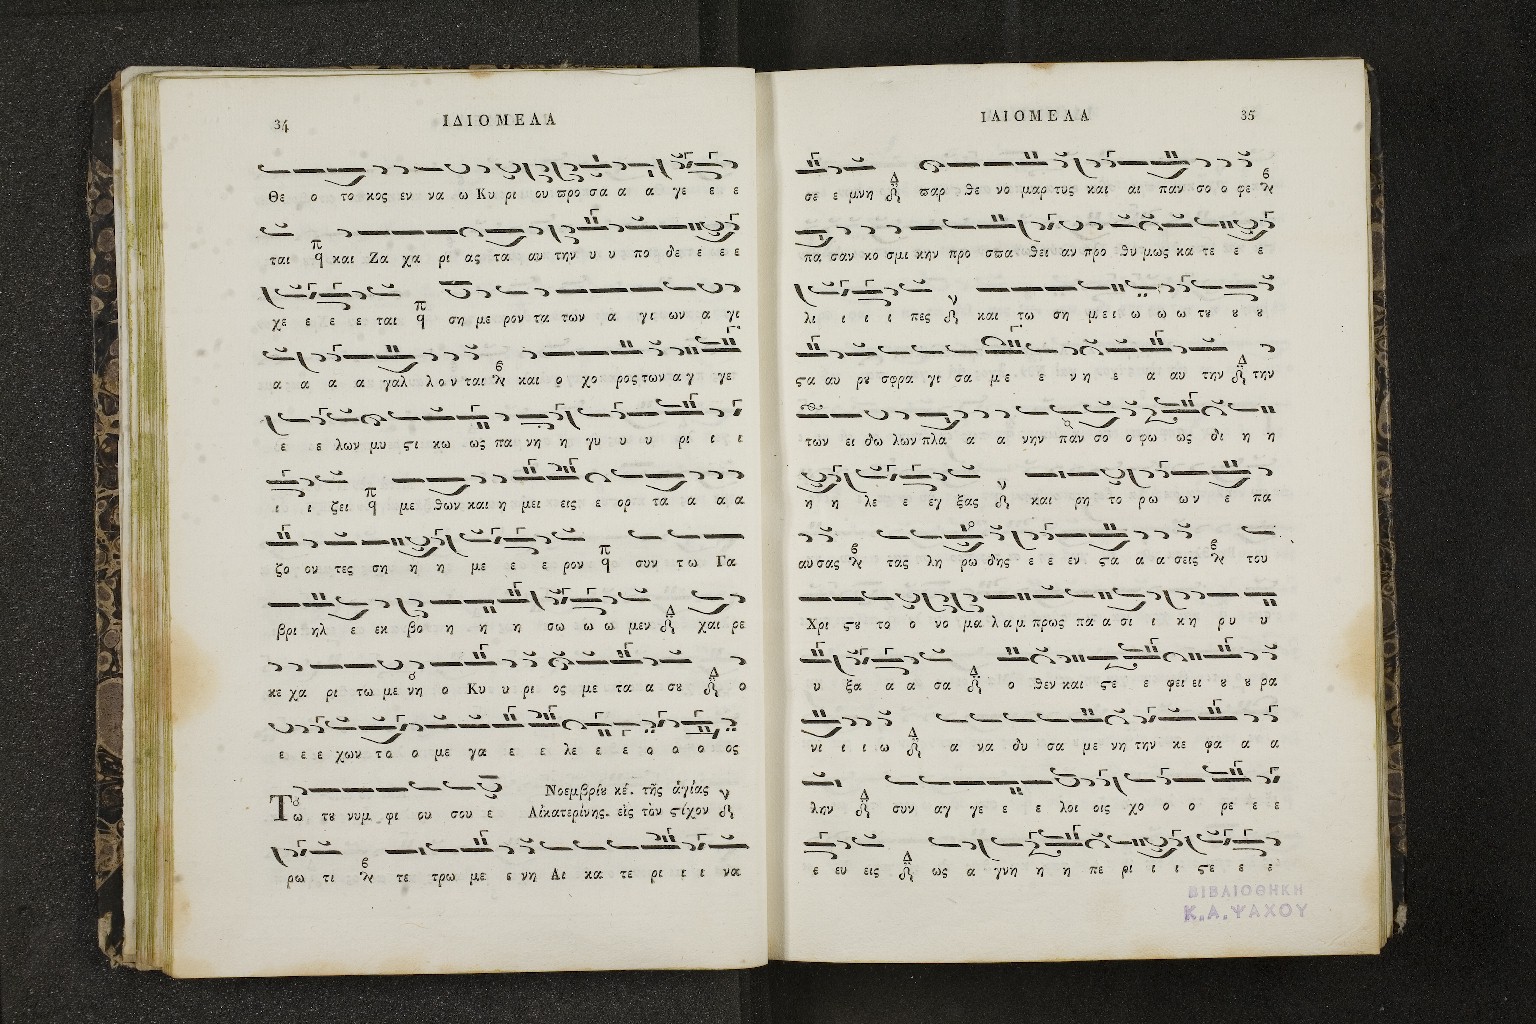 34
ΙΔΙΟΜΕΛΑ
Θε ο το κος εν να ω Κυ ρι ου προ σα α α γε ε ε
ται και Ζα χα ρι ας τα αυ την υ υ πο δε ε ε ε
χε ε ε ε ται ση με ρον τα των α γι ων α γι
α α α α γαλ λο ν ται και ο χο ρος των αγ γε
ε ε λων μυ ςι κω ως πα νη η γυ υ υ ρι ι ι
ι ι ζει με θων και η μει εις ε ορ τα α α α
ζο ον τες ση η η με ε ε ρον συν τω Γα
βρι ηλ ε εκ βο η η η σω ω ω μεν χαι ρε
κε χα ρι τω με νη ο Κυ υ ρι ος με τα α σου ο
ε ε ε χων το ο με γα ε ε λε ε ε ο ο ο ος
Νοεμβρίου κέ. τῆς ἁγίας
Τω του νυμ φι ου σου ε Αἰκατερίνης. εἰς τὸν ςίχον
ρω τι τε τρω με ε νη Αι κα τε ρι ι ι να
35
ΙΔΙΟΜΕΛΑ
σε ε μνη παρ θε νο μαρ τυς και αι παν σο ο φε
πα σαν κο σμι κην προ σπα θει αν προ θυ μως κα τε ε ε
λι ι ι ι πες και τω ση μ ε ι ω ω ω του ου ου
ςα αυ ρου σφρα γι σα με ε νη ε α αυ την την
των ει δω λων πλα α α νην παν σο ο φω ως δι η η
η η λε ε εγ ξας και ρη το ρω ων ε πα
αυ σας τας λη ρω δης ε ε εν ςα α α σεις του
Χρι ςου το ο νο μα λ α μ πρως πα α σι ι κη ρυ υ
υ ξα α α σα ο θεν και ςε ε φει ει ου ου ρα
νι ι ι ω α να δυ σα με νη την κε φα α α
λην συν αγ γε ε ε λοι οις χο ο ο ρε ε ε
ε ευ εις ως α γνη η η πε ρι ι ι ςε ε ε
ΒΙΒΛΙΟΘΗΚΗ
Κ.Α.ΨΑΧΟΥ